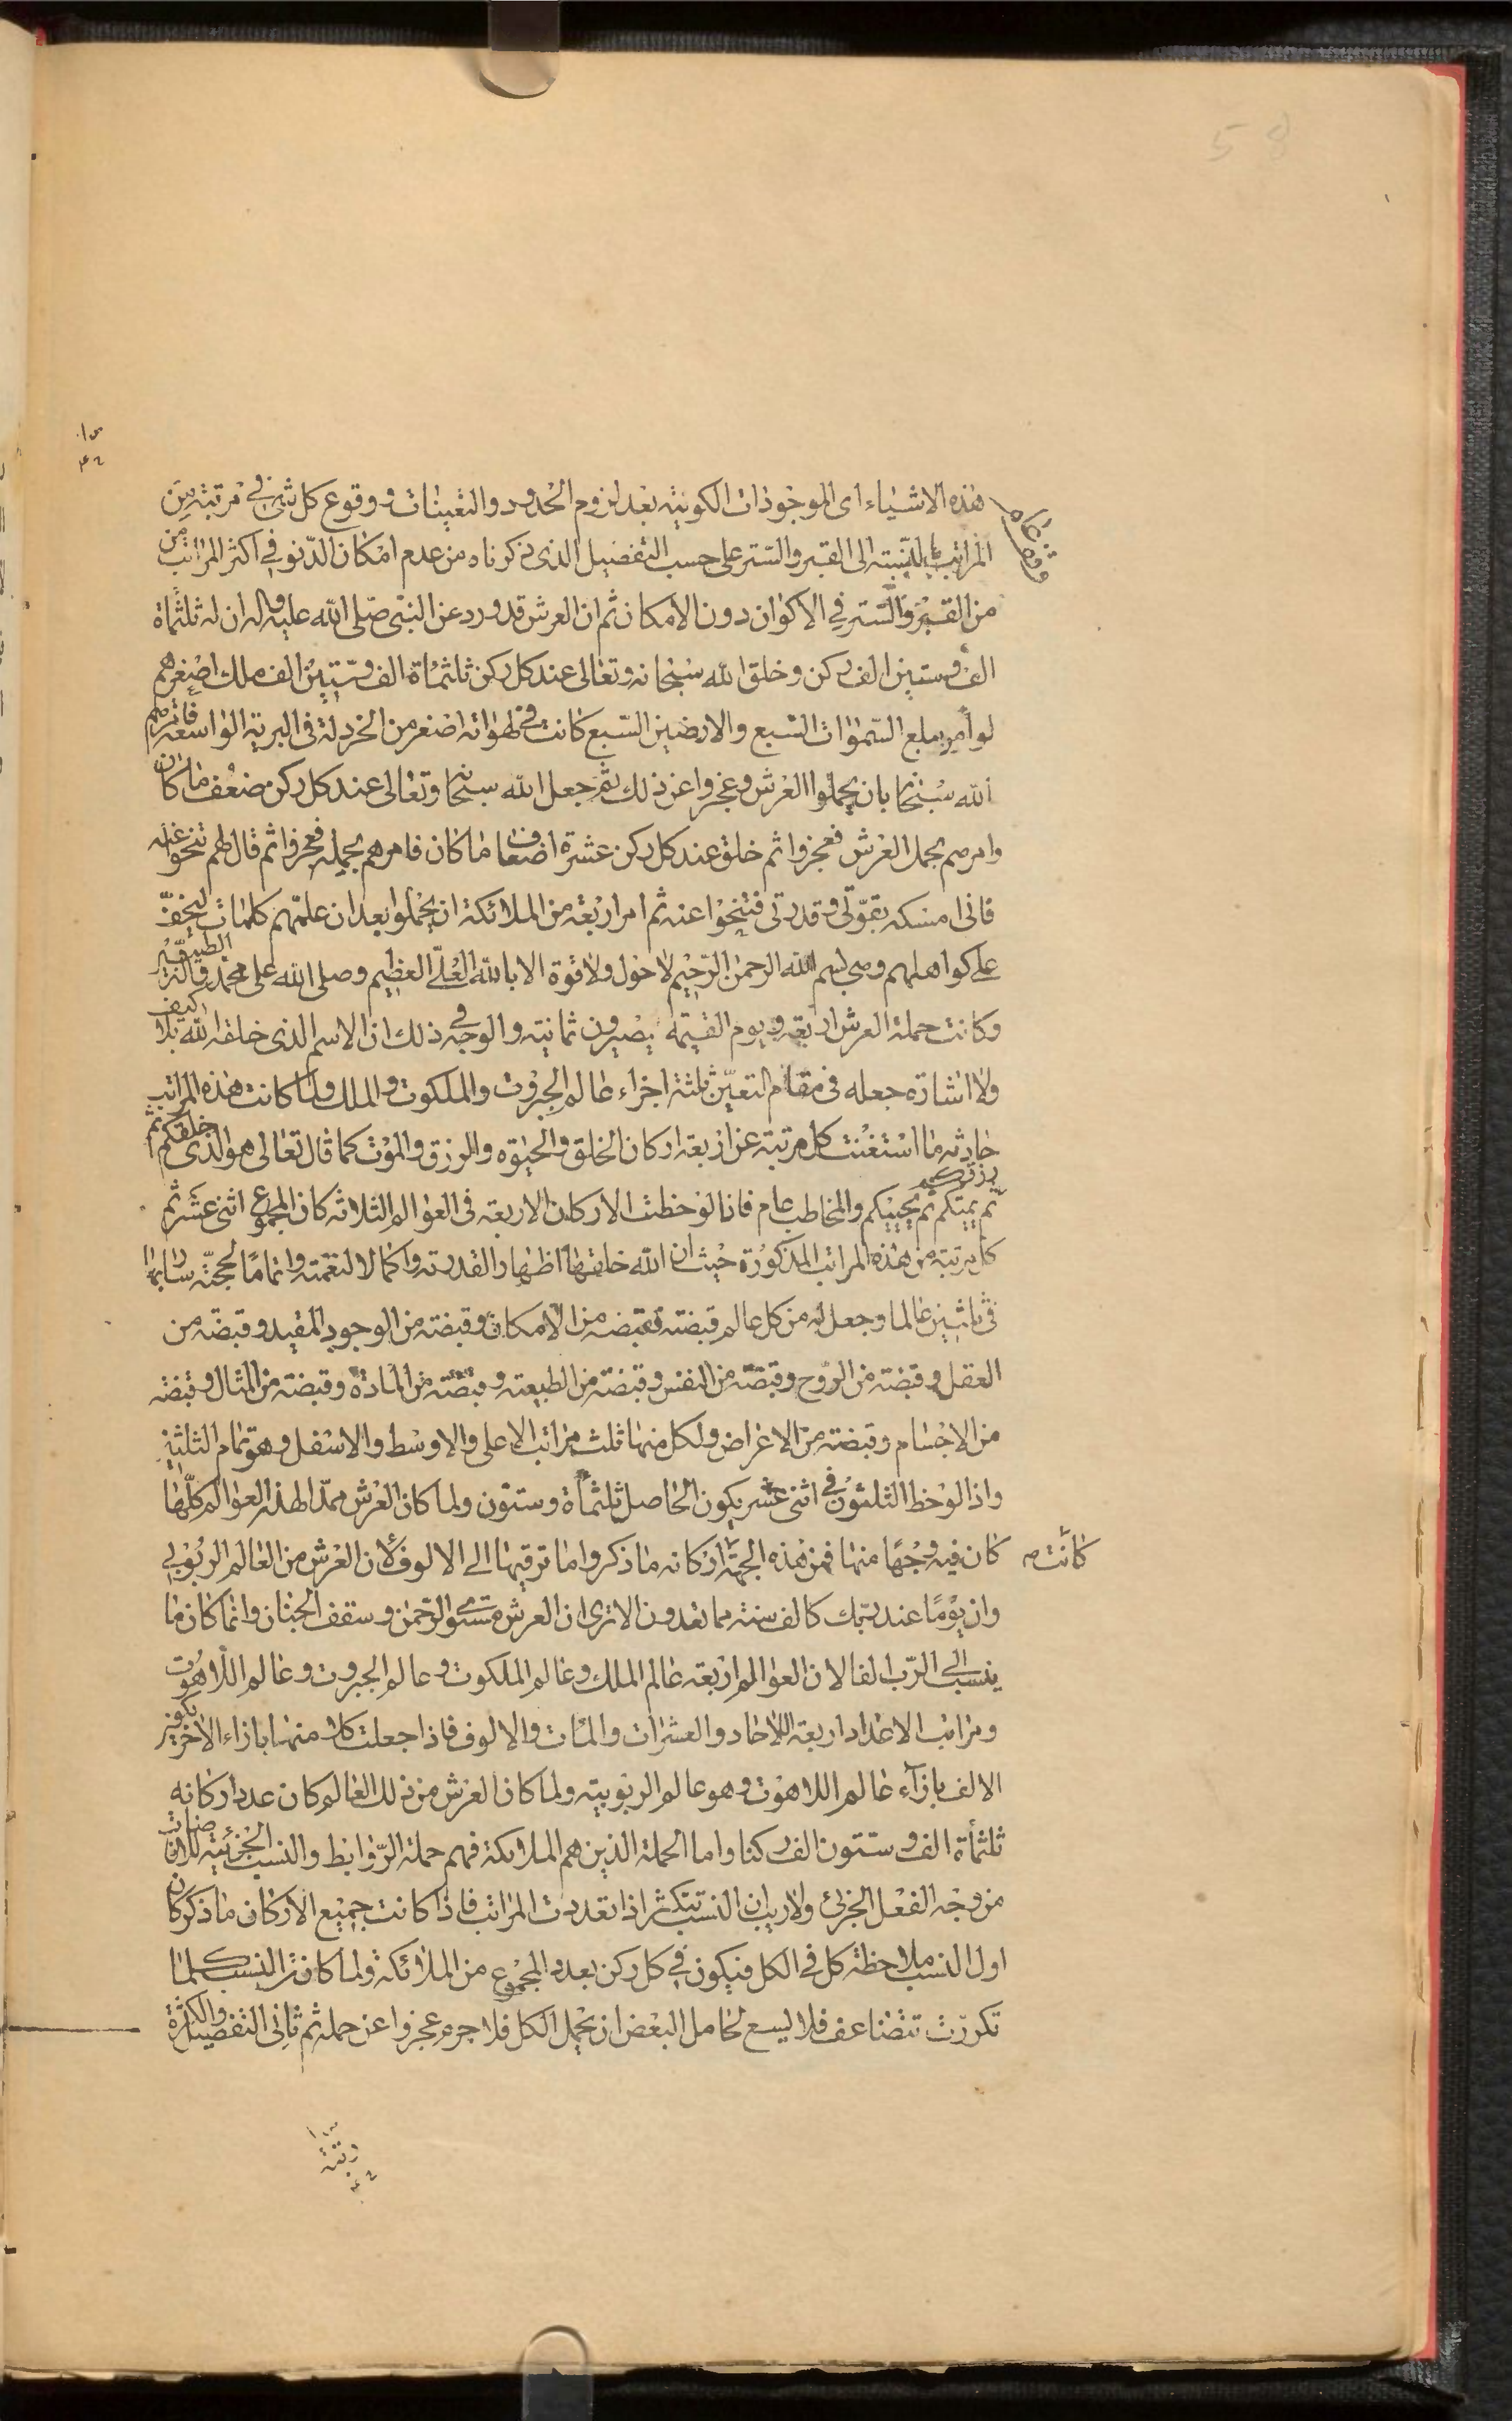 هذه الاشياء اى الموجودات الكونيته بعد لزوم الحدود والتعينات ووقوع كل شئ فى مرتبته من
المراتب بالنسبته الى القبر والستر على حسب التفضيل الذى ذكرناه من عدم امكان الدنو فى اكثر المراتب من
من القبر والستر فى الاكوان دون الامكان ثم ان العرش قد ورد عن النبى صلى الله عليه واله ان له ثلثماة
الف وستين الف ركن وخلق الله سبحانه وتعالى عند كل ركن ثلثماة الف وستين الف ملك اصغرهم
لو امر ببلع السموات السبع والارضين السبع كانت فى لهواته اصغر من الخردلة فى البرية الواسعة فامرهم
الله سبحانه بان يحملوا العرش وعجزوا عن ذلك ثم جعل الله سبحانه وتعالى عند كل ركن ضعف ما كان
وامرهم بحمل العرش فعجزوا ثم خلق عند كل ركن عشرة اضعاف ما كان فامرهم بحمله فعجزوا ثم قال لهم تنحوا عنه
فانى امسكه بقوتى وقدرتى فتنحوا عنه ثم امر اربعة من الملائكة ان يحملوا بعد ان علمهم كلمات ليخف
على كواهلهم وهى بسم الله الرحمن الرحيم لا حول ولا قوة الا بالله العلى العظيم وصلى الله على محمد واله الطيبين
وكانت حملة العرش اربعه ويوم القيمة يصيرون ثمانية والوجه فى ذلك ان الاسم الذى خلقه الله بلا كيف
ولا اشارة جعله فى مقام التعين ثلثة اجزاء عالم الجبروت والملكوت والملك ولما كانت هذه المراتب
حادثه ما استغنت كل مرتبة عن اربعة اركان الخلق والحيوة والرزق والموت كما قال تعالى هو الذى خلقكم ثم
رزقكم ثم يميتكم ثم يحييكم والمخاطب عام فاذا لوحظت الاركان الاربعه فى العوالم الثلاثه كان المجموع اثنى عشر ثم
كل مرتبة من هذه المراتب المذكورة حيث ان الله خلقها اظهارا لقدرته واكمالا لنعمته واتماما لحجته
فى ثلثين عالما وجعل له من كل عالم قبضته فقبضه من الامكان وقبضته من الوجود المقيد وقبضه من
العقل وقبضته من الروح وقبضة من النفس وقبضته من الطبيعته وقبضته من المادة وقبضته من المثال وقبضته
من الاجسام وقبضته من الاعراض ولكل منها ثلث مراتب الاعلى والاوسط والاسفل وهو تمام الثلثين
واذا لوحظ الثلثون فى اثنى عشر يكون الحاصل ثلثماة وستون ولما كان العرش ممدا لهذه العوالم كلها
كان فيه وجها منها فمن هذه الجهة اركانه ما ذكروا ما ترقيها الى الالوف لان العرش من العالم الربوبى
كانت
وان يوما عند ربك كالف سنة مما تعدون الا ترى ان العرش مستوى الرحمن وسقف الجنان وانما كان ما
ينسب الى الرب الفا لان العوالم اربعة عالم الملك وعالم الملكوت وعالم الجبروت وعالم اللاهوت
ومراتب الاعداد اربعة الاحاد والعشرات والمئات والالوف فاذا جعلت كلا منها بازاء الاخر يكون
الالف بازاء عالم اللاهوت وهو عالم الربوبيته ولما كان العرش من ذلك العالم كان عدد اركانه
ثلثماة الف وستون الف ركنا واما الحملة الذين هم الملائكة فهم حملة الروابط والنسب الجزئية
من وجه الفعل الجزئى ولا ريب ان النسب تتكثر اذا تعددت المراتب فاذا كانت جميع الاركان ما ذكر كان
اول النسب ملاحظة كل فى الكل فيكون فى كل ركن بعدد المجموع من الملائكة ولما كانت النسب كلما
تكررت تتضاعف فلا يسع لحامل البعض ان يحمل الكل فلا جرم عجزوا عن حمله ثم ثانى التفصيل والكثرة